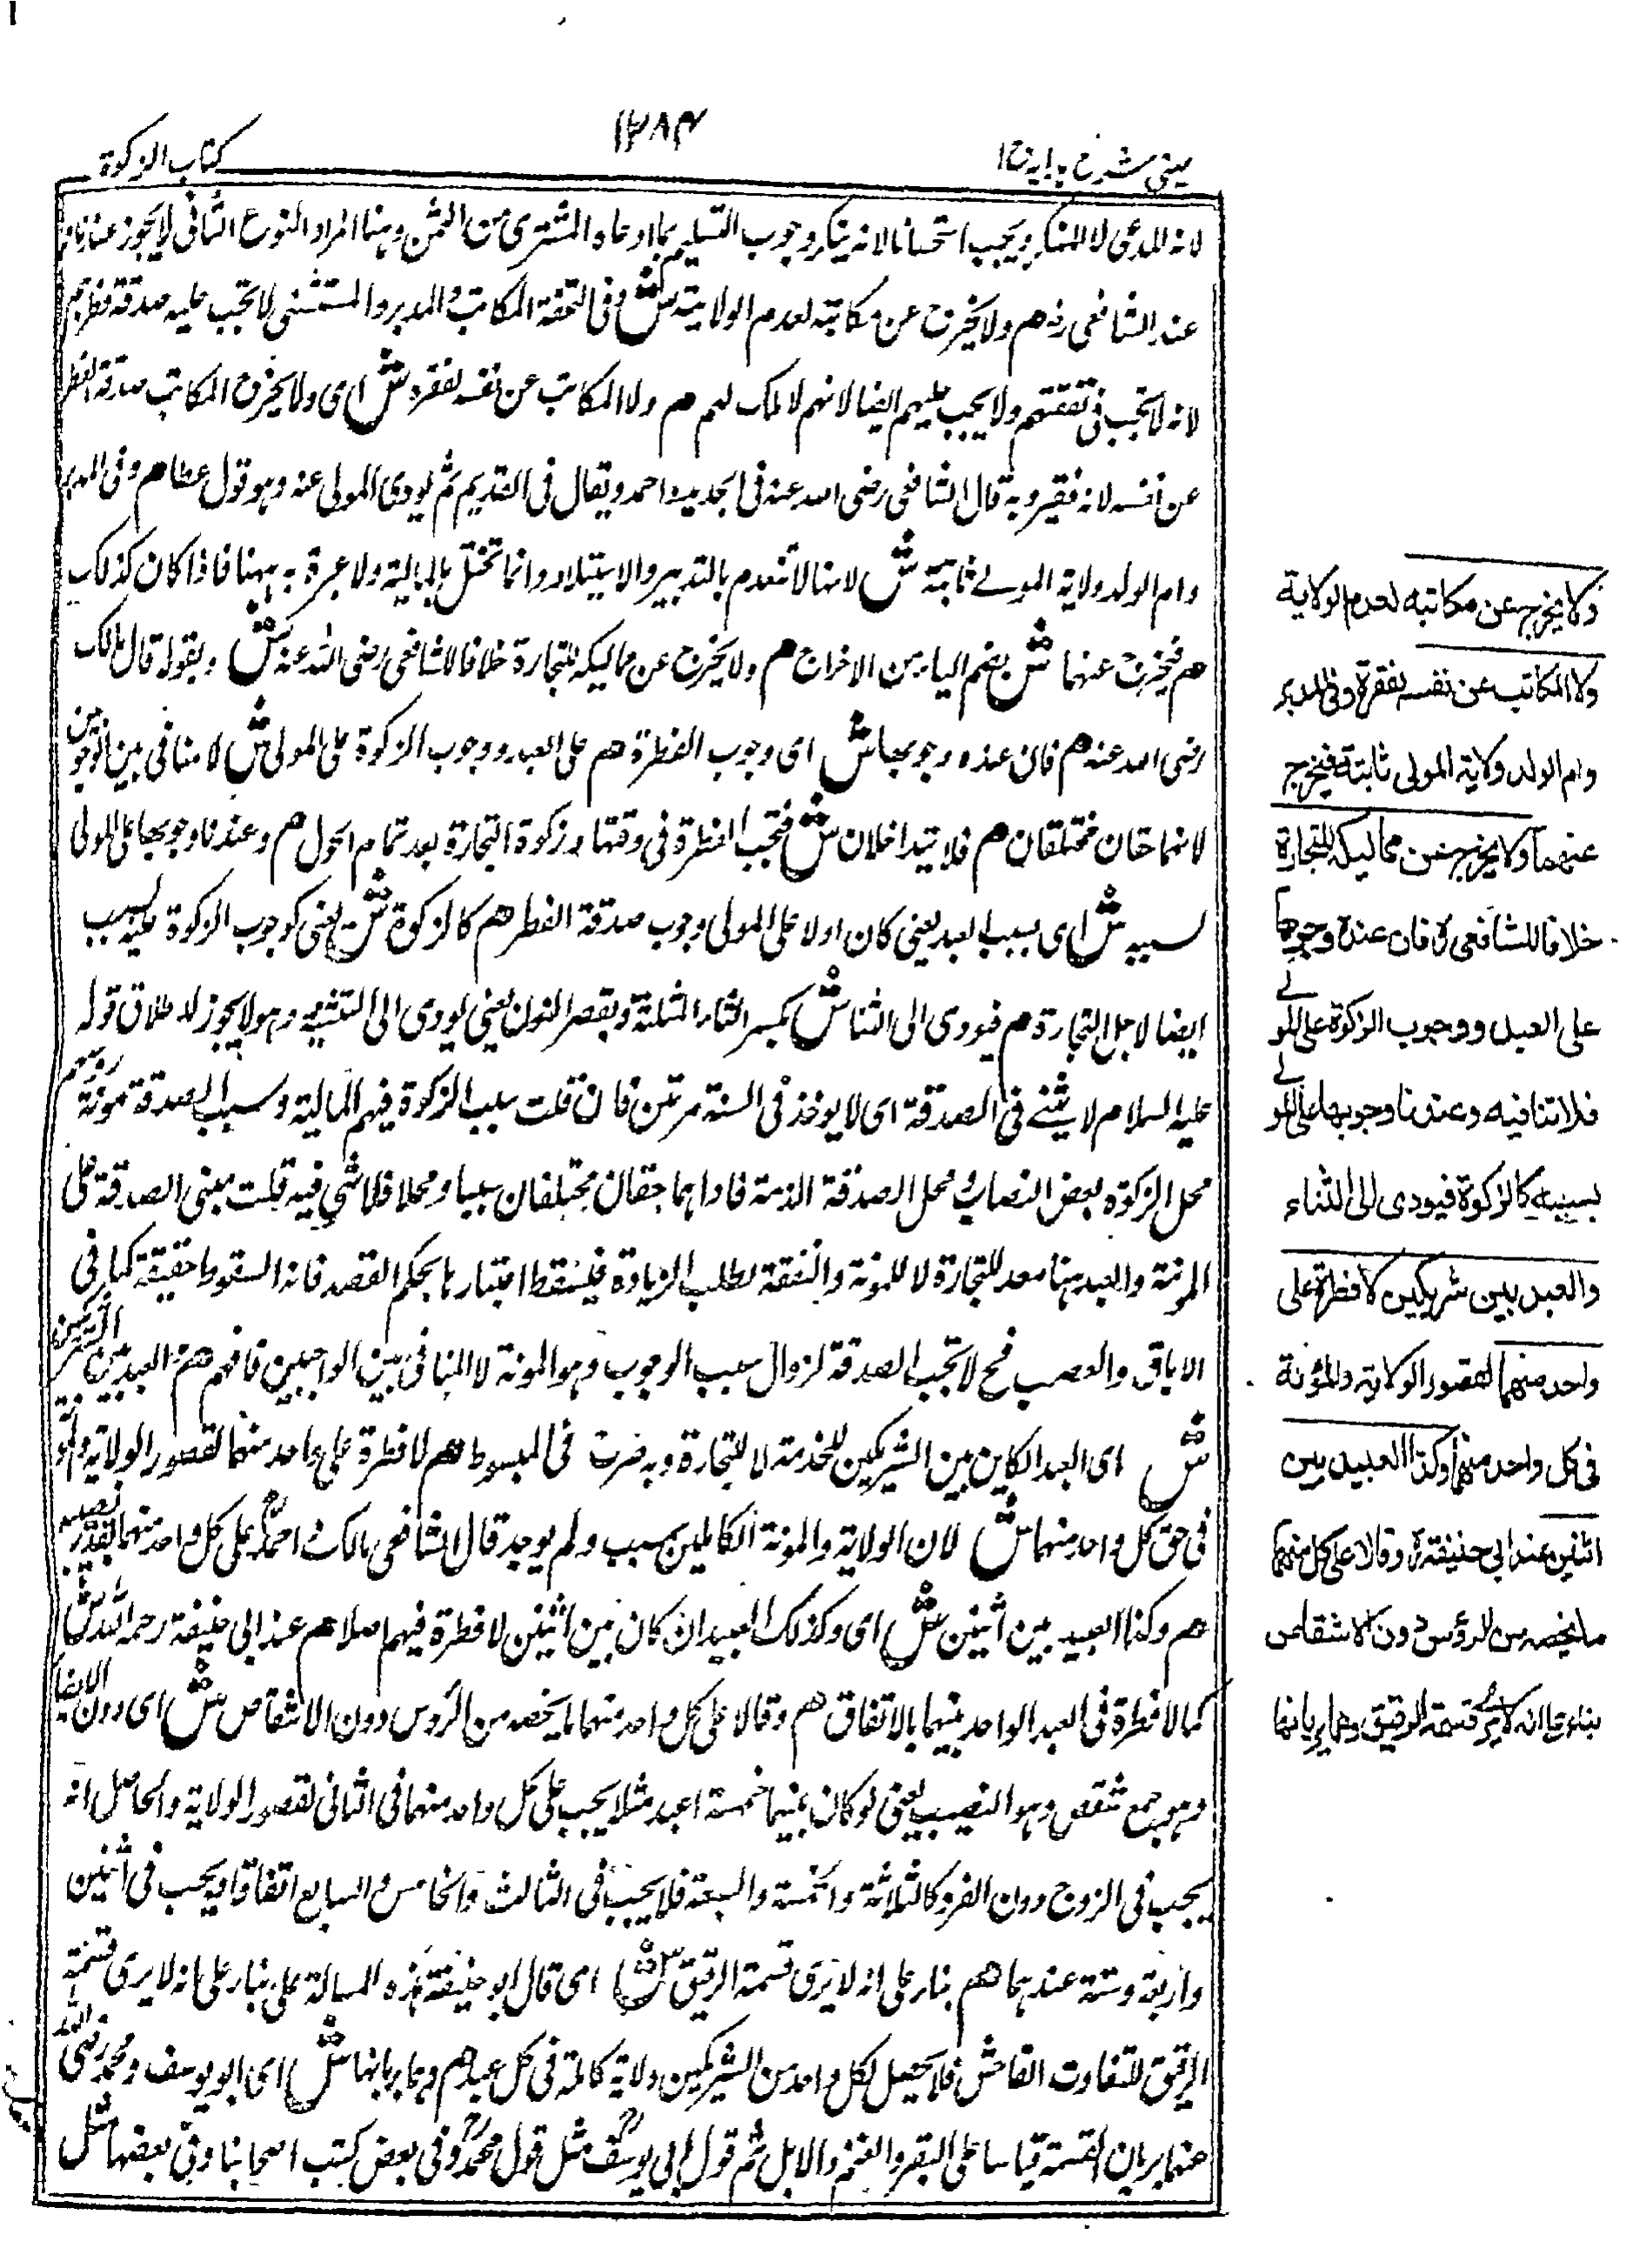 عینی شرح ہدایہ ج ۱
۱۲۸۴
کتاب الزکوة
لانہ للمدعی لا للمنکر ویجب استحسانا لانہ ینکر وجوب التسلیم بما ادعاہ المشتری من الثمن وہنا افراد النوع الثانی لا یجوز عندنا
عند الشافعی رض ھم ولا یخرج عن مکاتبہ لعدم الولایة ش وفی التحفة المکاتب والمدبر والمستسعی لا تجب علیہ صدقة فطرہم
لانہ لا تجب فی نفقتہم ولا یجب علیہم ایضا لانہم لا ملک لہم ھم ولا المکاتب عن نفسہ لفقرہ ش ای ولا یخرج المکاتب صدقة الفطر
عن نفسہ لانہ فقیر وبہ قال الشافعی رضی اللہ عنہ فی الجدید واحمد وقال فی القدیم ثم یودی المولی عنہ وہو قول عطا ھم وفی المدبر
وام الولد ولایة المولے ثابتة ش لانہا لا تنعدم بالتدبیر والاستیلاد وانما تختل المالیة ولا عبرة بہ ہہنا فاذا کان کذلک
ھم فیخرج عنہما ش بضم الیاء من الاخراج ھم ولا یخرج عن ممالیکہ للتجارة خلافا للشافعی رضی اللہ عنہ ش وبقولہ قال مالک
رضی اللہ عنہ ھم فان عندہ وجوبہا ش ای وجوب الفطرة ھم علی العبد ووجوب الزکوة علی المولی ش لا منافی بین الوجوبین
لانہما حقان مختلفان ھم فلا یتداخلان ش فتجب الفطرة فی وقتہا وزکوة التجارة بعد تمام الحول ھم وعندنا وجوبہا علی المولی
بسببہ ش ای بسبب العبد یعنی کان اولا علی المولی وجوب صدقة الفطر ھم کالزکوة ش یعنی کوجوب الزکوة علیہ بسبب
ایضا لاجل التجارة ھم فیودی الی الثنا ش بکسر الثاء المثلثة وبقصر النون یعنی یودی الی التثنیة وہو لا یجوز لاطلاق قولہ
علیہ السلام لا ثنے فی الصدقة ای لا یوخذ فی السنة مرتین فان قلت سبب الزکوة فیہم المالیة وسبب الصدقة مؤنة رؤسہم
محل الزکوة بعض النصاب ومحل الصدقة الذمة فاذا ہما حقان مختلفان سببا ومحلا فلا شی فیہ قلت مبنی الصدقة علی
المؤنة والعبد ہہنا معد للتجارة لا للمؤنة والنفقة لطلب الزیادة فیسقط اعتبارہا بحکم القصد فانہ السقوط حقیقة کما فی
الاباق والغصب فح لا تجب الصدقة لزوال سبب الوجوب وہو المونة لا المنافی بین الواجبین فافہم ھم العبد بین الشریکین
ش ای العبد الکاین بین الشریکین للخدمة لا للتجارة وبہ صرح فی المبسوط ھم لا فطرة علی واحد منہما لقصور الولایة والمؤنة
فی حق کل واحد منہما ش لان الولایة والمونة الکاملین سبب ولم یوجد قال الشافعی مالک واحمد علی کل واحد منہما بقدر نصیبہ
ھم وکذا العبید بین اثنین ش ای وکذلک العبید ان کان بین اثنین لا فطرة فیہم اصلا ھم عند ابی حنیفة رحمہ اللہ ش
کما لا فطرة فی العبد الواحد بینہما بالاتفاق ھم وقالا علی کل واحد منہما ما یخصہ من الرؤس دون الاشقاص ش ای دون الانصبا
وہو جمع شقص وہو النصیب یعنی لو کان بینہما خمسة اعبد مثلا یجب علی کل واحد منہما فی اثنین لقصور الولایة والحاصل انہ
یجب فی الزوج دون الفرد کالثلاثة والخمسة والسبعة فلا یجب فی الثالث والخامس والسابع اتفاقا ویجب فی اثنین
واربعة وستة عندہما ھم بناء علی انہ لا یری قسمة الرقیق ش ای قال ابو حنیفة ہذہ المسالة علی بناء علی انہ لا یری قسمة
الرقیق للتفاوت الفاحش فلا یحصل لکل واحد من الشریکین ولایة کاملة فی کل عبد ھم وہما یریانہا ش ای ابو یوسف ومحمد رضی اللہ
عنہما یریان القسمة قیاسا علی البقر والغنم والابل ثم قول ابی یوسف مثل قول محمد وفی بعض کتب اصحابنا وفی بعضہا مثل
ولا یخرج عن مکاتبہ لعدم الولایة
ولا المکاتب عن نفسہ لفقرہ وفی المدبر
وام الولد ولایة المولی ثابتة فیخرج
عنہما ولا یخرج عن ممالیکہ للتجارة
خلافا للشافعی رح فان عندہ وجوبہا
علی العبد ووجوب الزکوة علی المولے
فلا تنافیہ وعندنا وجوبہا علی المولے
بسببہ کالزکوة فیودی الی الثناء
والعبد بین شریکین لا فطرة علی
واحد منہما لقصور الولایة والمؤنة
فی کل واحد منہما وکذا العبید بین
اثنین عند ابی حنیفة رح وقالا علی کل منہما
ما یخصہ من الرؤس دون الاشقاص
بناء علی انہ لا یری قسمة الرقیق وہما یریانہا